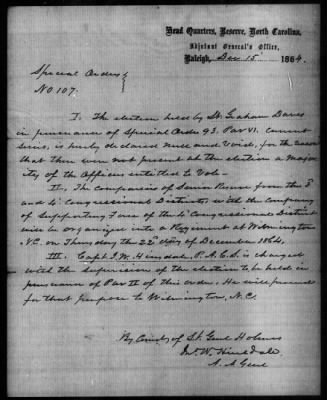 Head Quarters, Reserve, North Carolina,
Adjutant General's Office,
Raleigh, Dec 15 1864.
Special Orders
No 107.
I. The election held by Lt. Graham Daves
in pursuance of Special Order 93. Par VI. current
series, is hereby declared null and void, for the reason
that there were not present at the election a major-
ity of the Officers entitled to Vote.
II. The Companies of Senior Reserve from the 3d
and 4th Congressional Districts, with the company
of Supporting Force of the 4th Congressional District
will be organized into a Regiment at Wilmington
N.C. on Thursday the 22d day of December 1864.
III. Capt J. W. Hinsdale, P. A. C. S. is charged
with the supervision of the election to be held in
pursuance of Par II of this order. He will proceed
for that purpose to Wilmington, N.C.
By Comd of Lt. Genl Holmes
Jno. W. Hinsdale
A. A Genl